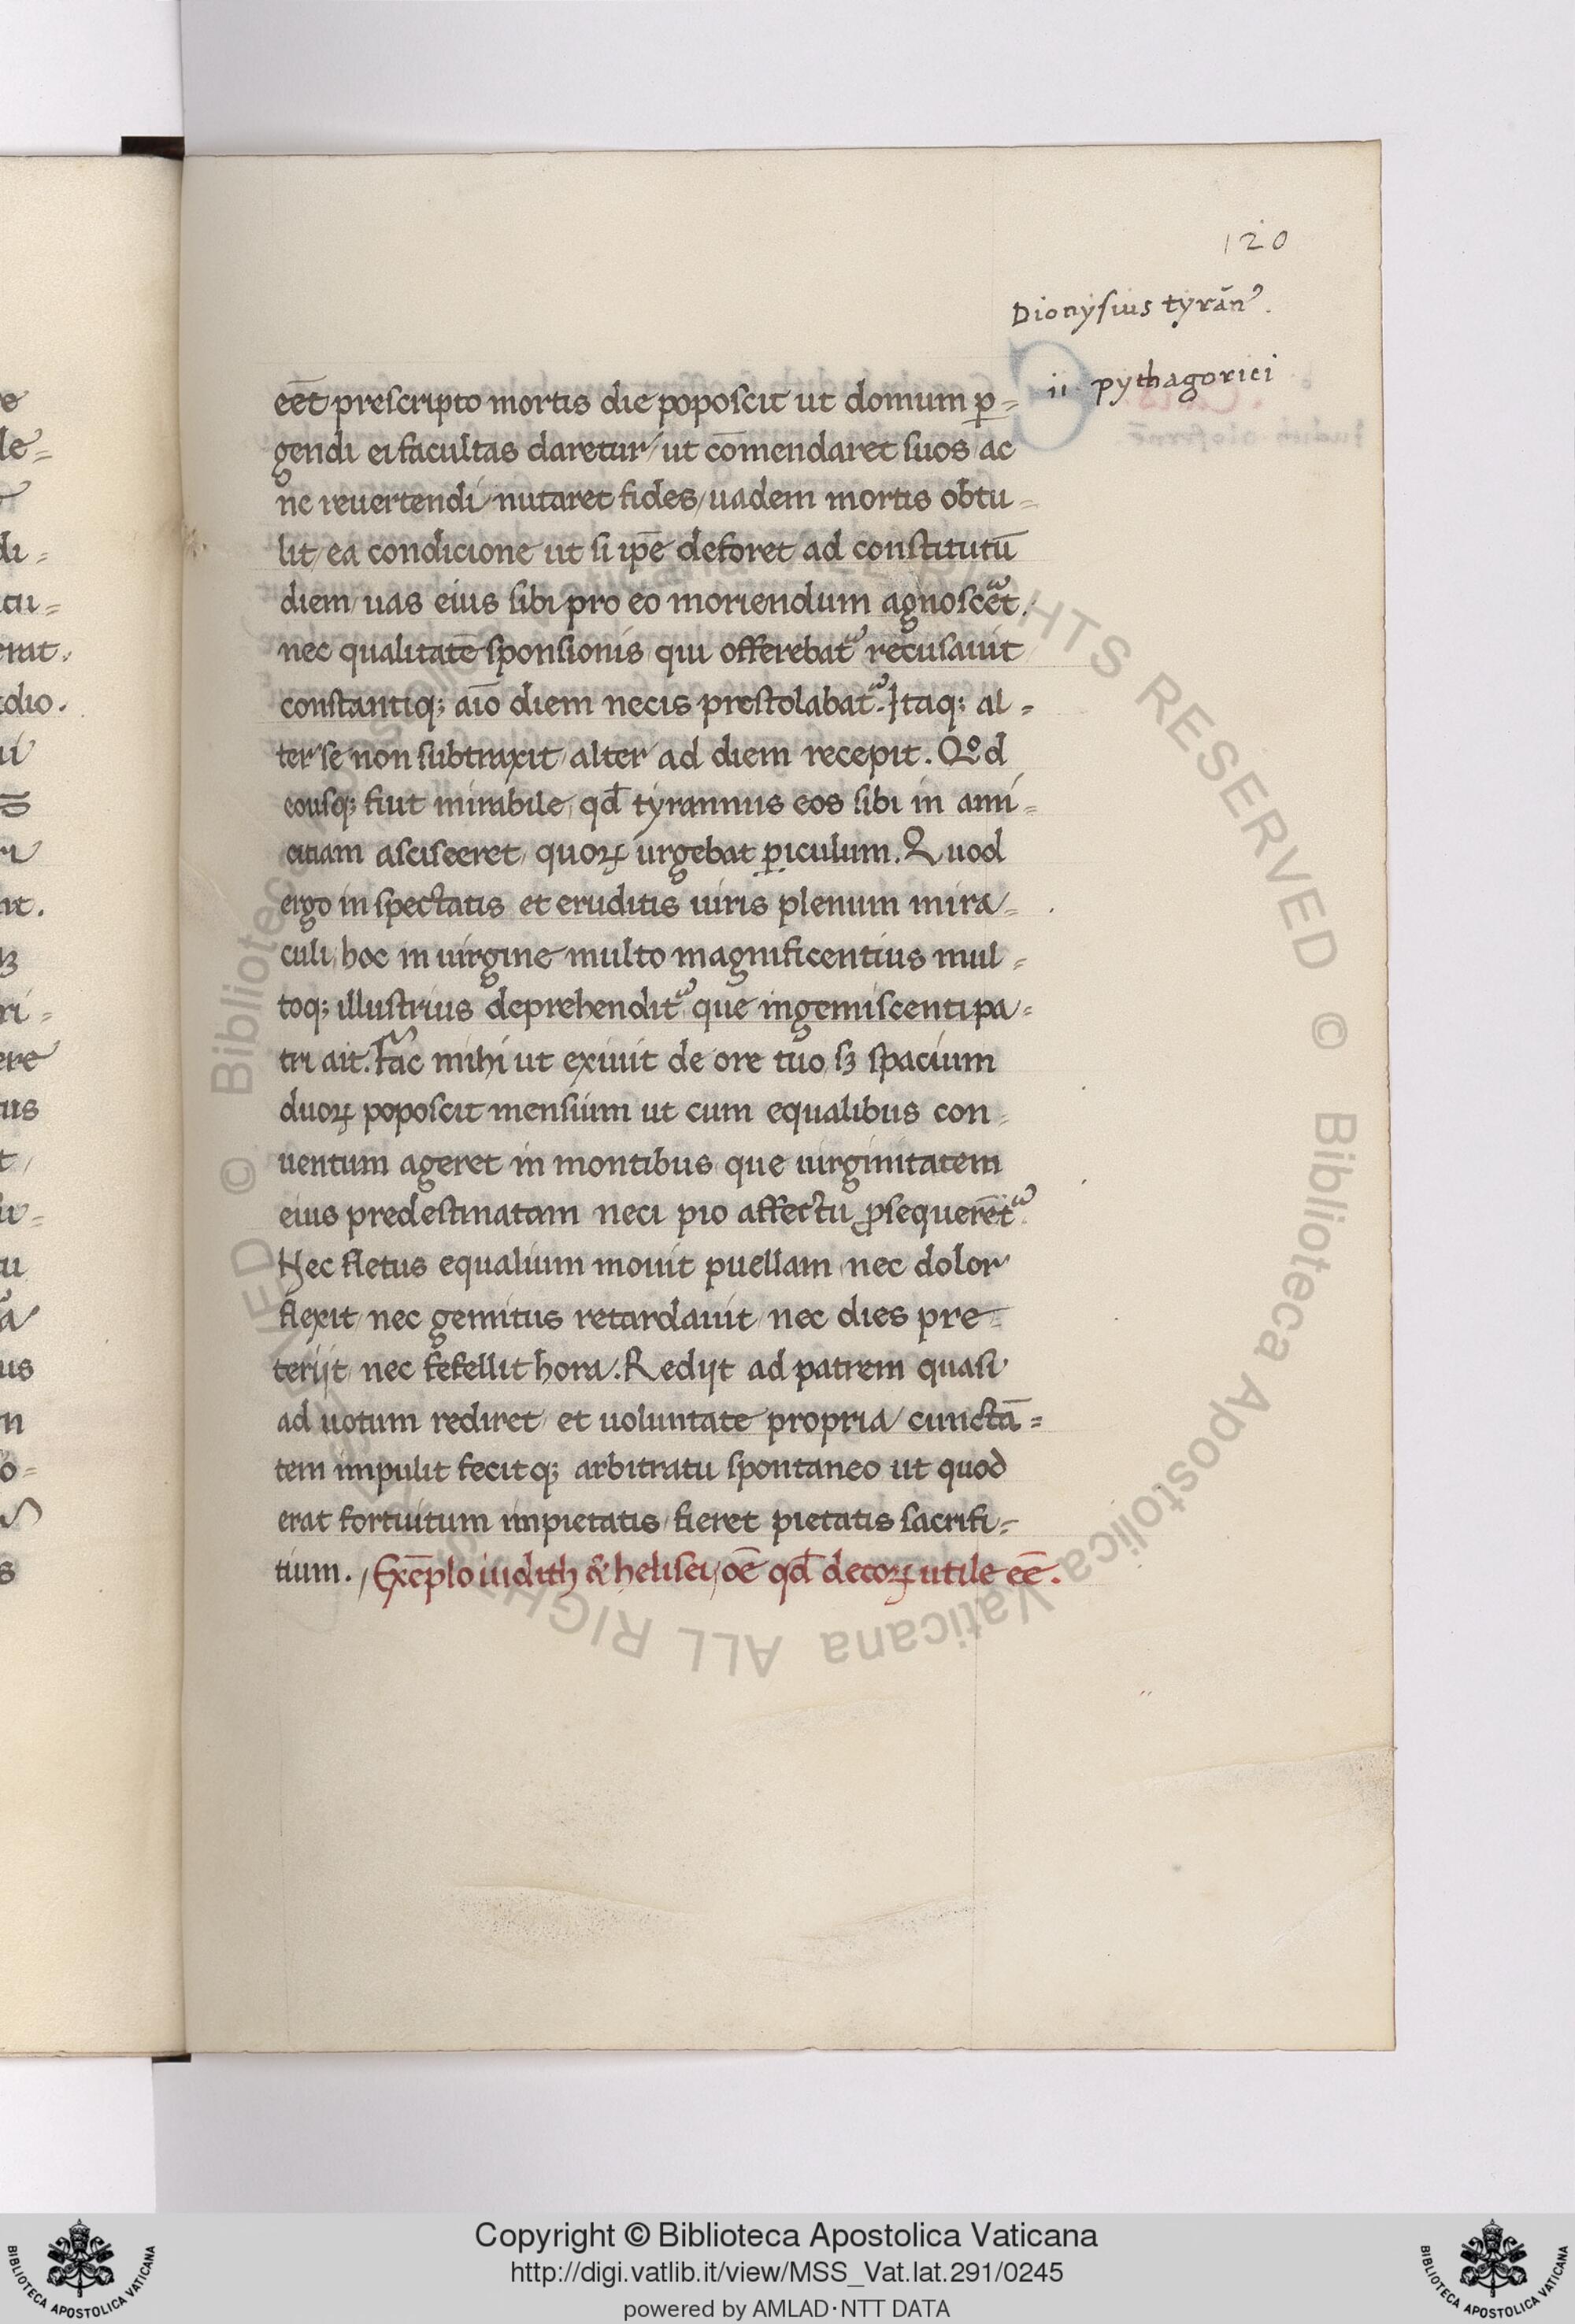 120
Dionyſius tyrãn⁹.
ii pythagorici
eēt preſcripto mortis die popoſcit ut domum ꝑ=
gendi ei facultas daretur/ ut cōmendaret ſuos/ ac
ne reuertendi nutaret fides/ uadem mortis obtu=
lit/ ea condicione ut ſi ip̄e deforet ad conſtitutū
diem/ uas eius ſibi pro eo moriendum agnoſcet᷑.
nec qualitatē ſponſionis qui offerebat᷑ recuſauit
conſtantiq; aīo diem necis preſtolabat᷑. Itaq; al=
ter ſe non ſubtraxit/ alter ad diem recepit. Qod
eouſq; fuit mirabile, qd̄ tyrannus eos ſibi in ami=
citiam aſciſceret/ quoꝝ urgebat ꝑiculum. Quod
ergo in ſpectatis et eruditis uiris plenum mira=
culi, hoc in uirgine multo magnificentius mul=
toq; illuſtrius deprehendit᷑ que ingemiſcenti pa=
tri ait. Fac mihi ut exiuit de ore tuo, ſꝫ ſpacium
duoꝝ popoſcit menſium ut cum equalibus con=
uentum ageret in montibus que uirginitatem
eius predeſtinatam neci pio affectu ꝓſequerēt᷑.
Nec fletus equalium mouit puellam, nec dolor
flexit/ nec gemitus retardauit/ nec dies pre=
teriit/ nec fefellit hora. Rediit ad patrem quaſi
ad uotum rediret/ et uoluntate propria cunctā=
tem impulit fecitq; arbitratu ſpontaneo ut quod
erat fortuitum impietatis/ fieret pietatis ſacrifi=
tium. / Exēplo iudith & heliſei/ oē qd̄ decoꝝ utile eē.
Copyright © Biblioteca Apostolica Vaticana
http://digi.vatlib.it/view/MSS_Vat.lat.291/0245
powered by AMLAD·NTT DATA